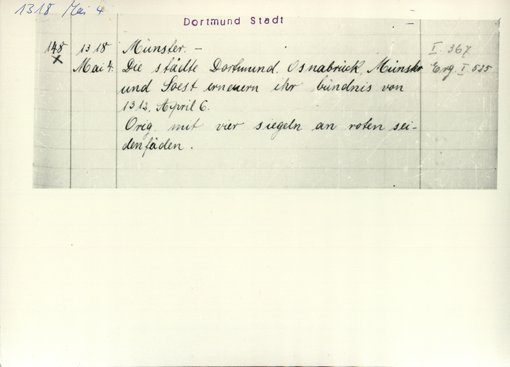 1318 Mai 4.
Dortmund Stadt
148 1318 Münster. – I. 367
x Mai 4. Die städte Dortmund, Osnabrück, Münster Erg I. 525
und Soest erneuern ihr bündnis von
1313, April 6.
Orig. mit vier siegeln an roten sei-
denfäden.